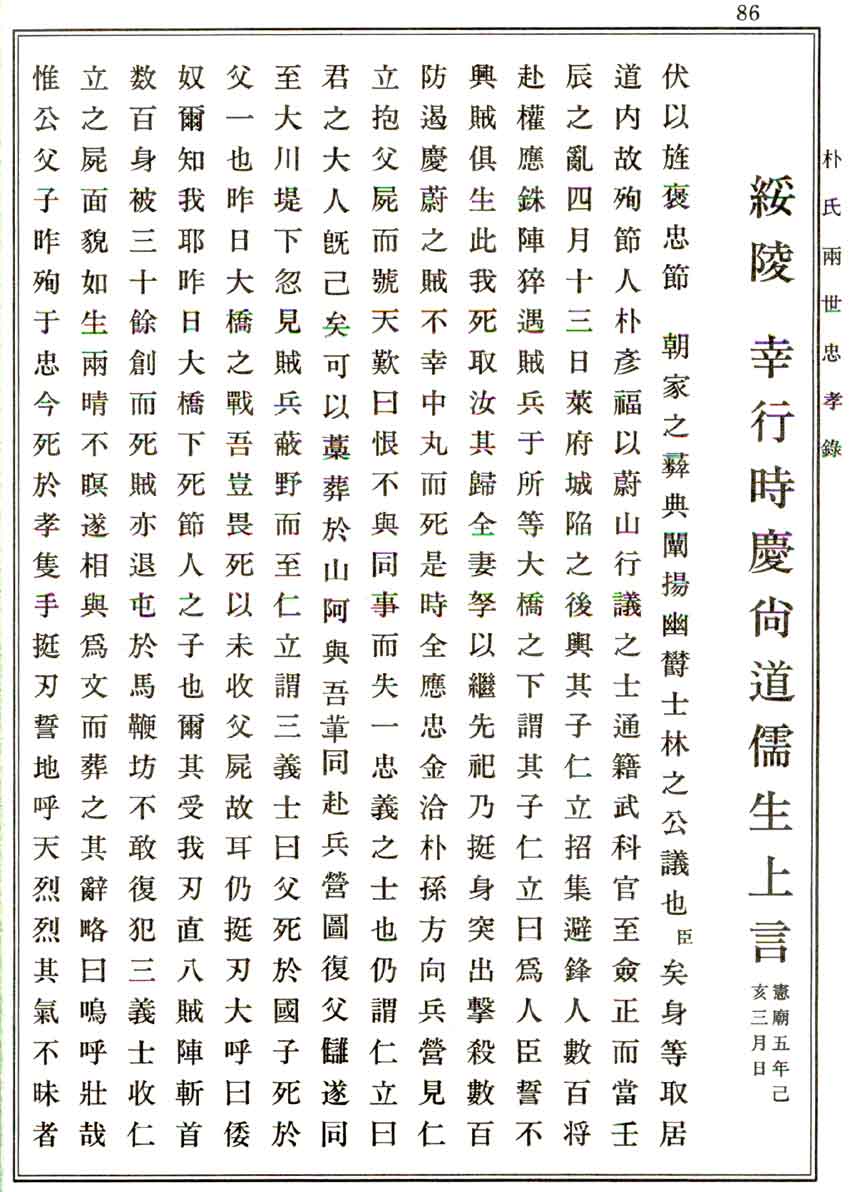 86
朴氏兩世忠孝錄
綏陵 幸行時慶尙道儒生上言 憲廟五年己亥三月日
伏以旌褒忠節 朝家之彛典闡揚幽欝士林之公議也臣矣身等取居
道内故殉節人朴彥福以蔚山行議之士通籍武科官至僉正而當壬
辰之亂四月十三日萊府城陷之後輿其子仁立招集避鋒人數百将
赴權應銖陣猝遇賊兵于所等大橋之下謂其子仁立曰爲人臣誓不
興賊俱生此我死取汝其歸全妻孥以繼先祀乃挺身突出擊殺數百
防遏慶蔚之賊不幸中丸而死是時全應忠金洽朴孫方向兵營見仁
立抱父屍而號天歎曰恨不與同事而失一忠義之士也仍謂仁立曰
君之大人旣己矣可以藁葬於山阿與吾軰同赴兵營圖復父讎遂同
至大川堤下忽見賊兵蔽野而至仁立謂三義士曰父死於國子死於
父一也昨日大橋之戰吾豈畏死以未收父屍故耳仍挺刃大呼曰倭
奴爾知我耶昨日大橋下死節人之子也爾其受我刃直八賊陣斬首
数百身被三十餘創而死賊亦退屯於馬鞭坊不敢復犯三義士收仁
立之屍面貌如生兩晴不瞑遂相與爲文而葬之其辭略曰嗚呼壯哉
惟公父子昨殉于忠今死於孝隻手挺刃誓地呼天烈烈其氣不昧者